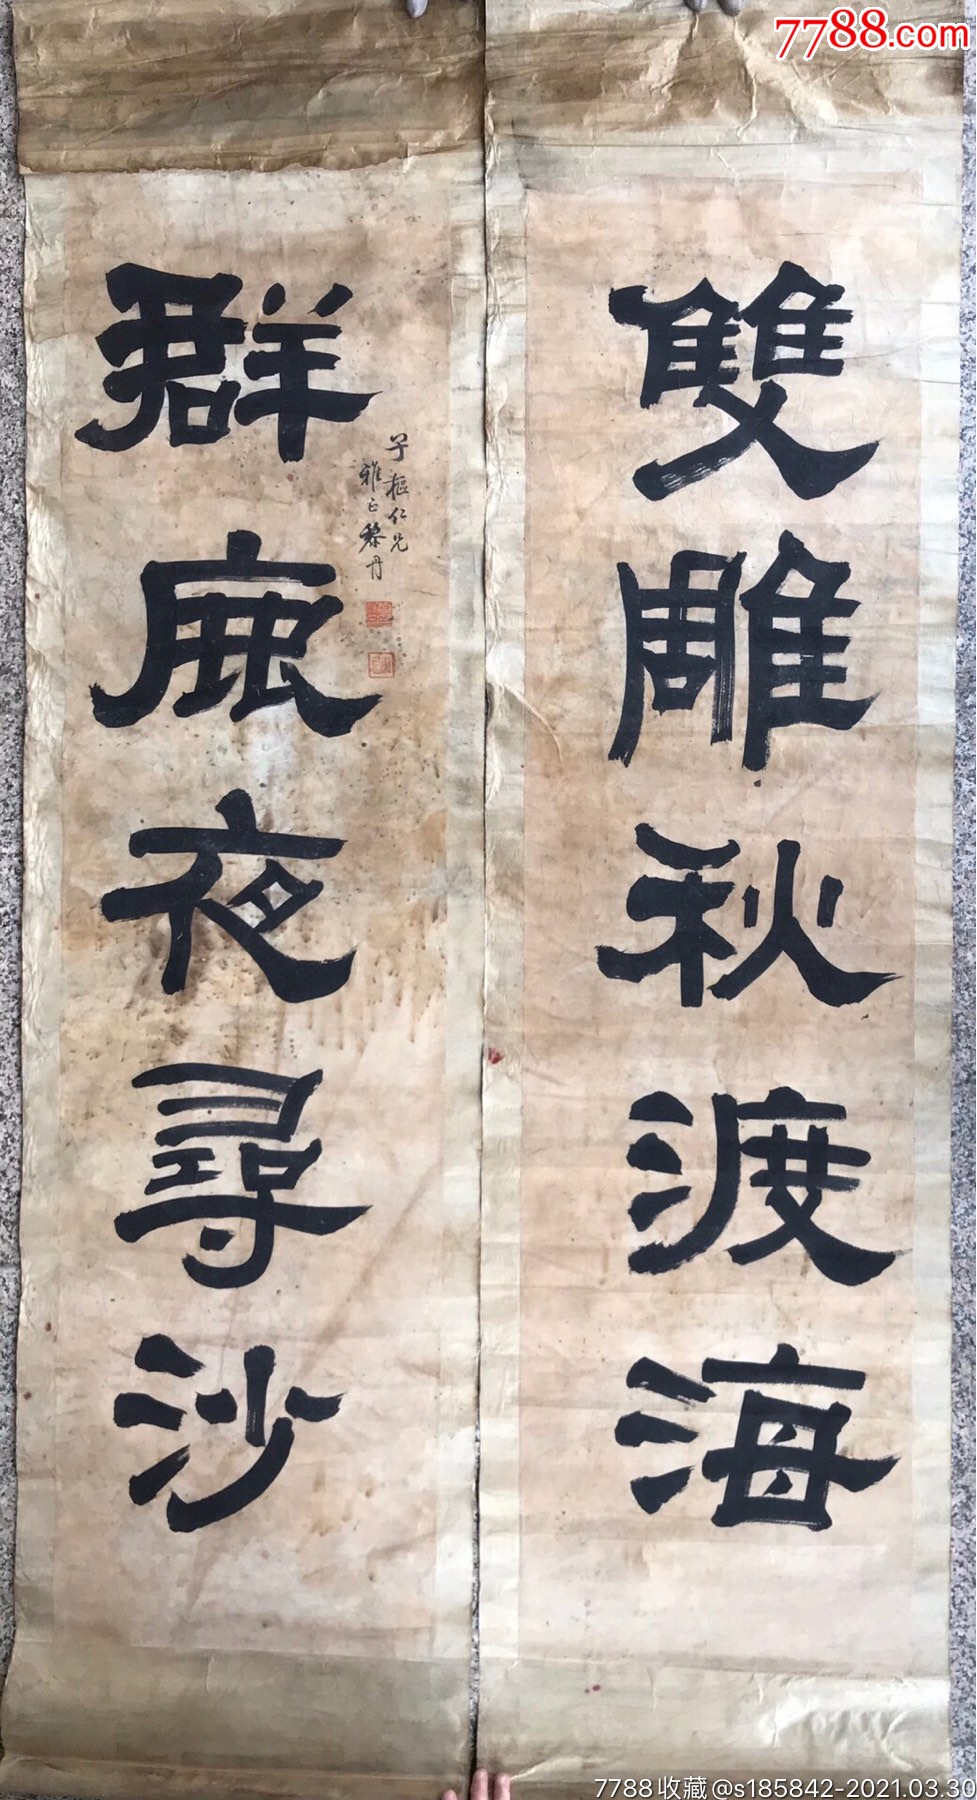 7788.com
雙雕秋渡海
群鹿夜尋沙
子樞仁兄
雅正黎丹
7788收藏@s185842-2021.03.30